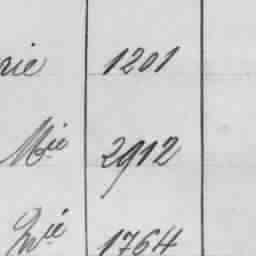 rie 1201
Mie 2912
1764